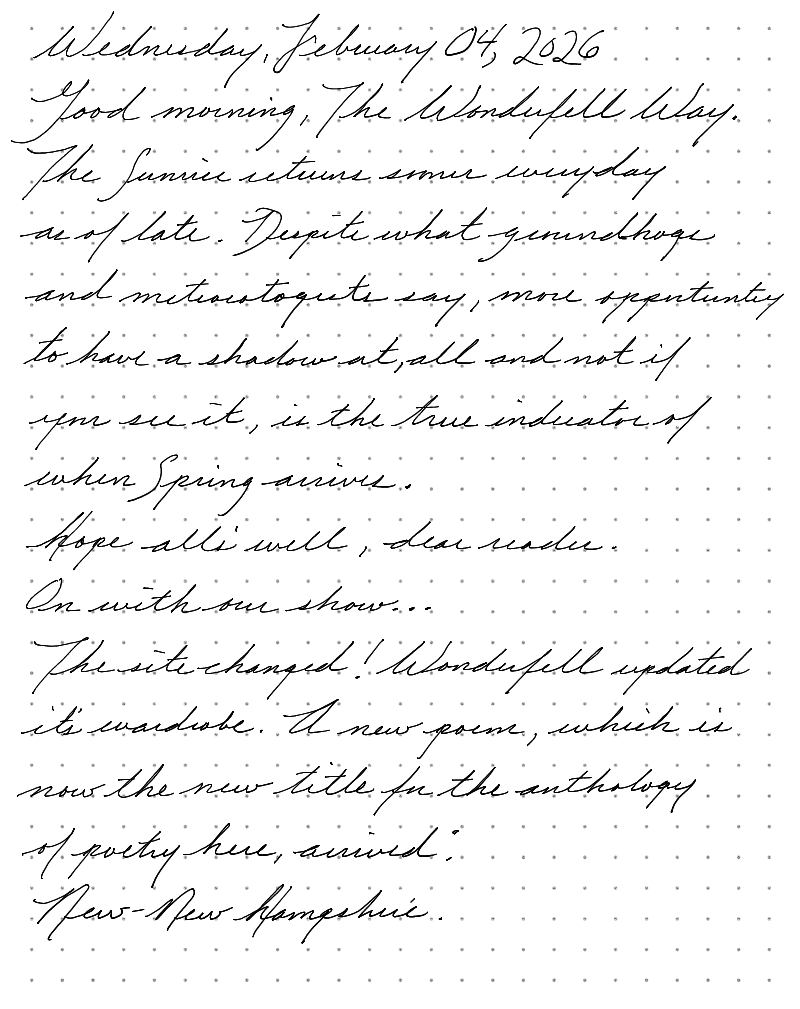 Wednesday, February 04, 2026
Good morning, The Wonderfell Way.
The Sunrise returns sooner everyday
as of late. Despite what groundhogs
and meteorologists say, more opportunity
to have a shadow at, all and not if
you see it, is the true indicator of
when Spring arrives.
Hope all's well, dear reader.
On with our show...
The site changed! Wonderfell updated
it's wardrobe. A new poem, which is
now the new title for the anthology
of poetry here, arrived:
New-New Hampshire.